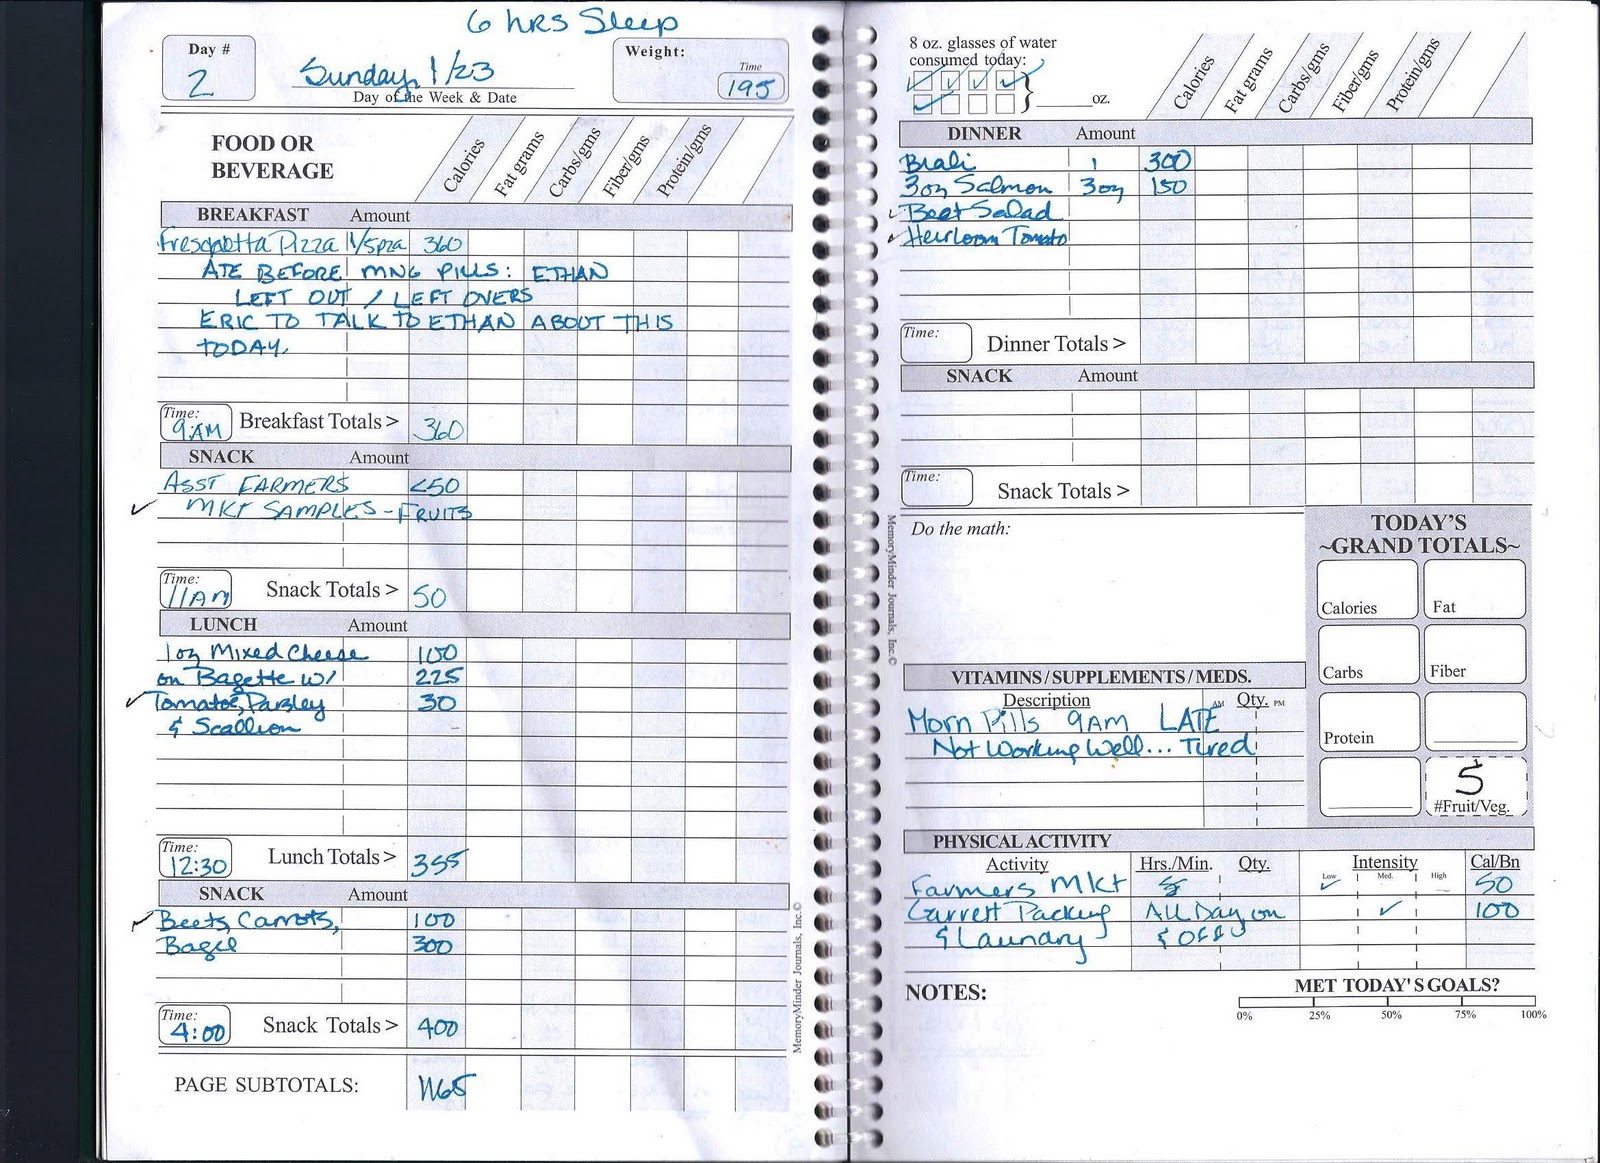 6 hrs Sleep
Day #
2
Sunday 1/23
Day of the Week & Date
Weight:
Time
195
FOOD OR
BEVERAGE
Calories
Fat grams
Carbs/gms
Fiber/gms
Protein/gms
BREAKFAST Amount
Freschetta Pizza 1/5pza 360
ATE BEFORE MNG PILLS: ETHAN
LEFT OUT / LEFT OVERS
ERIC TO TALK TO ETHAN ABOUT THIS
TODAY.
Time:
9AM
Breakfast Totals > 360
SNACK Amount
ASST FARMERS <50
✓ MKT SAMPLES - FRUITS
Time:
11AM
Snack Totals > 50
LUNCH Amount
1oz Mixed Cheese 100
on Bagette w/ 225
✓ Tomatoe, Parsley 30
& Scallion -
Time:
12:30
Lunch Totals > 355
SNACK Amount
✓ Beets, Carrots, 100
Bagel 300
Time:
4:00
Snack Totals > 400
PAGE SUBTOTALS: 1165
MemoryMinder Journals, Inc.©
8 oz. glasses of water
consumed today:
oz.
Calories
Fat grams
Carbs/gms
Fiber/gms
Protein/gms
DINNER Amount
Biali 1 300
3oz Salmon 3oz 150
✓ Beet Salad
✓ Heirloom Tomato
Time:
Dinner Totals >
SNACK Amount
Time:
Snack Totals >
MemoryMinder Journals, Inc.©
Do the math:
TODAY'S
~GRAND TOTALS~
Calories
Fat
Carbs
Fiber
Protein
5
#Fruit/Veg.
VITAMINS / SUPPLEMENTS / MEDS.
Description AM Qty. PM
Morn Pills 9AM LATE
Not Working Well... Tired
PHYSICAL ACTIVITY
Activity Hrs./Min. Qty. Intensity Cal/Bn
Low Med. High
Farmers Mkt ✓ 50
Garrett Packing All Day on ✓ 100
& Laundry & Off
NOTES:
MET TODAY'S GOALS?
0% 25% 50% 75% 100%